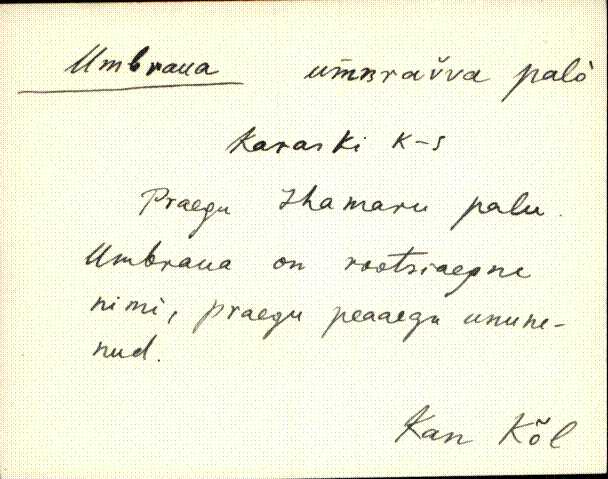 Umbraua umʙravva palò
Karaski k-s
Praegu Ihamaru palu.
Umbraua on rootsiaegne
nimi, praegu peaaegu unune-
nud.
Kan Kõl